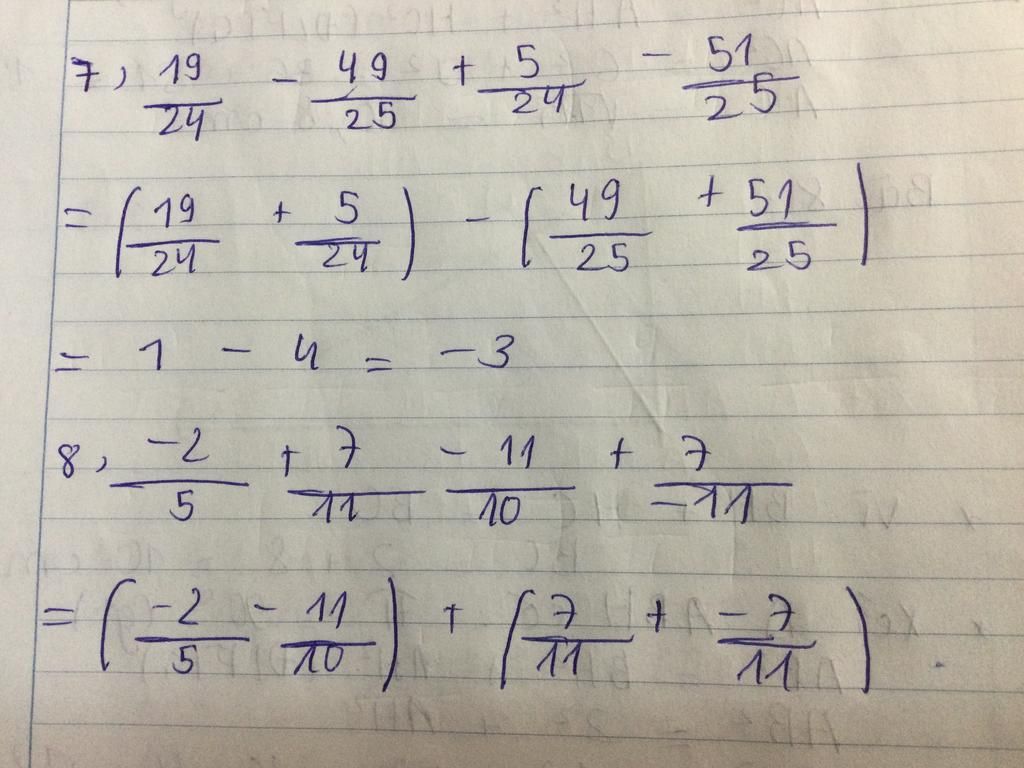 7, 19/24 - 49/25 + 5/24 - 51/25
= (19/24 + 5/24) - (49/25 + 51/25)
= 1 - 4 = -3
8, -2/5 + 7/11 - 11/10 + 7/-11
= (-2/5 - 11/10) + (7/11 + -7/11)